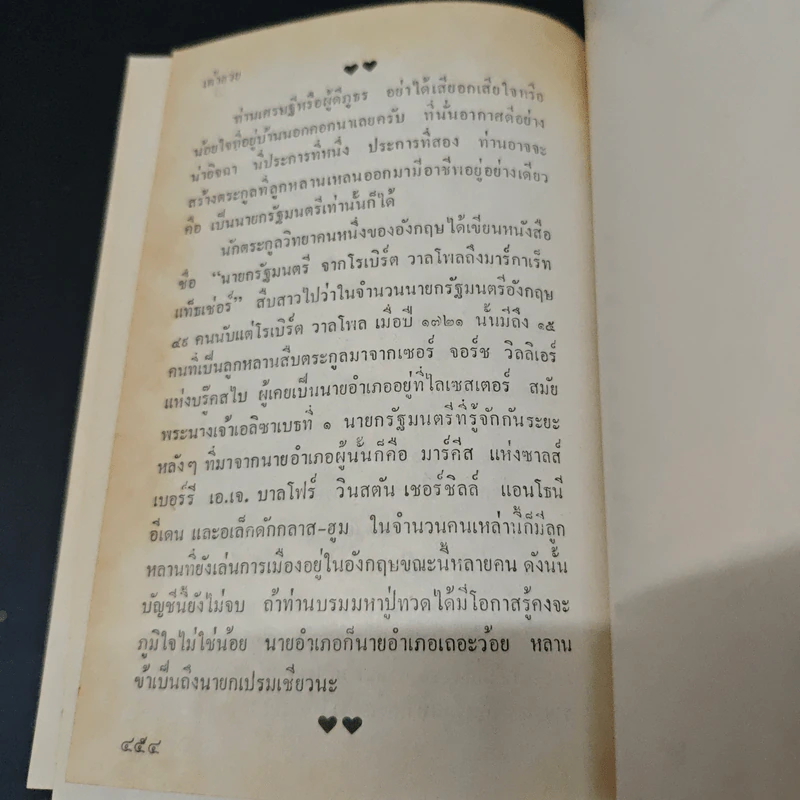 เต้าอวย
ท่านเศรษฐีหรือผู้ดีภูธร อย่าได้เสียอกเสียใจหรือ
น้อยใจที่อยู่บ้านนอกคอกนาเลยครับ ที่นั่นอากาศดีอย่าง
น่าอิจฉา นี่ประการที่หนึ่ง ประการที่สอง ท่านอาจจะ
สร้างตระกูลที่ลูกหลานเหลนออกมามีอาชีพอยู่อย่างเดียว
คือ เป็นนายกรัฐมนตรีเท่านั้นก็ได้
นักตระกูลวิทยาคนหนึ่งของอังกฤษได้เขียนหนังสือ
ชื่อ “นายกรัฐมนตรี จากโรเบิร์ต วาลโพลถึงมาร์กาเร็ท
แท็ธเช่อร์” สืบสาวไปว่าในจำนวนนายกรัฐมนตรีอังกฤษ
๔๙ คนนับแต่โรเบิร์ต วาลโพล เมื่อปี ๑๗๒๑ นั้นมีถึง ๑๕
คนที่เป็นลูกหลานสืบตระกูลมาจากเซอร์ จอร์ช วิลลิเอร์
แห่งบรู๊คสไบ ผู้เคยเป็นนายอำเภออยู่ที่ไลเซสเตอร์ สมัย
พระนางเจ้าเอลิซาเบธที่ ๑ นายกรัฐมนตรีที่รู้จักกันระยะ
หลังๆ ที่มาจากนายอำเภอผู้นั้นก็คือ มาร์คีส แห่งซาลส์
เบอร์รี เอ.เจ. บาลโฟร์ วินสตัน เชอร์ชิลล์ แอนโธนี
อีเดน และอเล็กดักกลาส-ฮูม ในจำนวนคนเหล่านี้ก็มีลูก
หลานที่ยังเล่นการเมืองอยู่ในอังกฤษขณะนี้หลายคน ดังนั้น
บัญชีนี้ยังไม่จบ ถ้าท่านบรมมหาปู่ทวดได้มีโอกาสรู้คงจะ
ภูมิใจไม่ใช่น้อย นายอำเภอก็นายอำเภอเถอะว้อย หลาน
ข้าเป็นถึงนายกเปรมเชียวนะ
๔๕๔